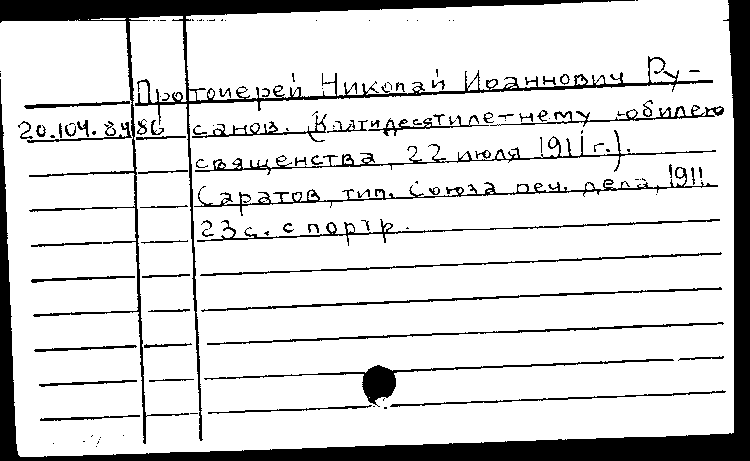 Протоиерей Николай Иоаннович Ру-
20.104.8.486 санов. (К пятидесятилетнему юбилею
священства, 22 июля 1911 г.).
Саратов, тип. Союза печ. дела, 1911.
23 с. с портр.